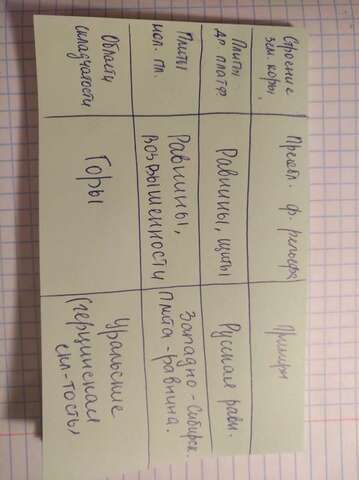 Строение
зем. коры.
Преобл. ф. рельефа
Примеры
Плиты
др. платф.
Равнины, щиты
Русская равн.
Плиты
мол. пл.
Равнины,
возвышенности
Западно-Сибирск.
плита-равнина.
Области
складчатости
Горы
Уральские
(герцинская
скл-тость)